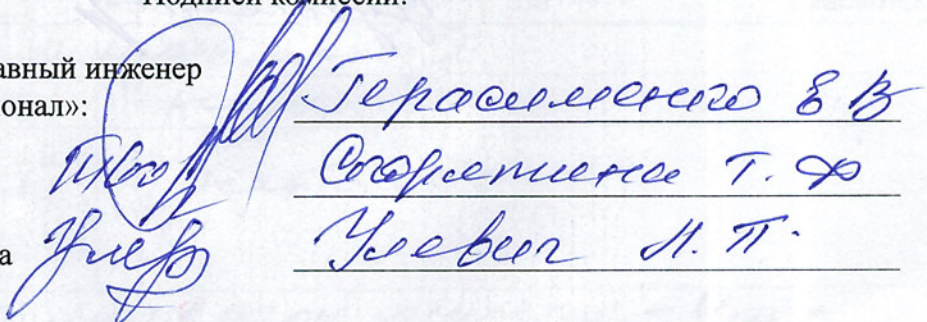 Подписи комиссии:
авный инженер
онал»: Герасименко Е В
Т. Ф
а Улевич Н. П.